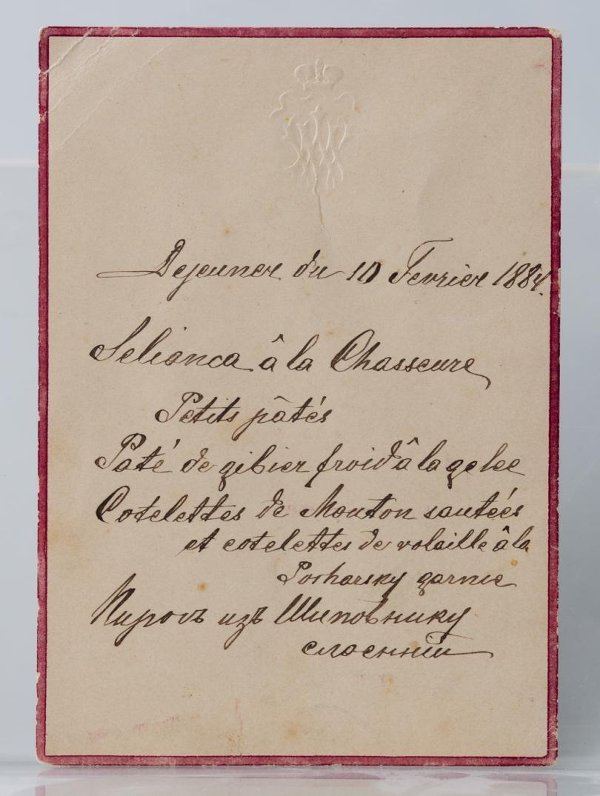 Dejeuner du 10 Fevrier 1884.
Selianca â la Chasseure
Petits pâtés
Paté de gibier froid â la gelee
Cotelettes de Mouton sautées
et cotelettes de volaille â la
Posharsky garnie
Пирогъ изъ Шиповнику
слоенній